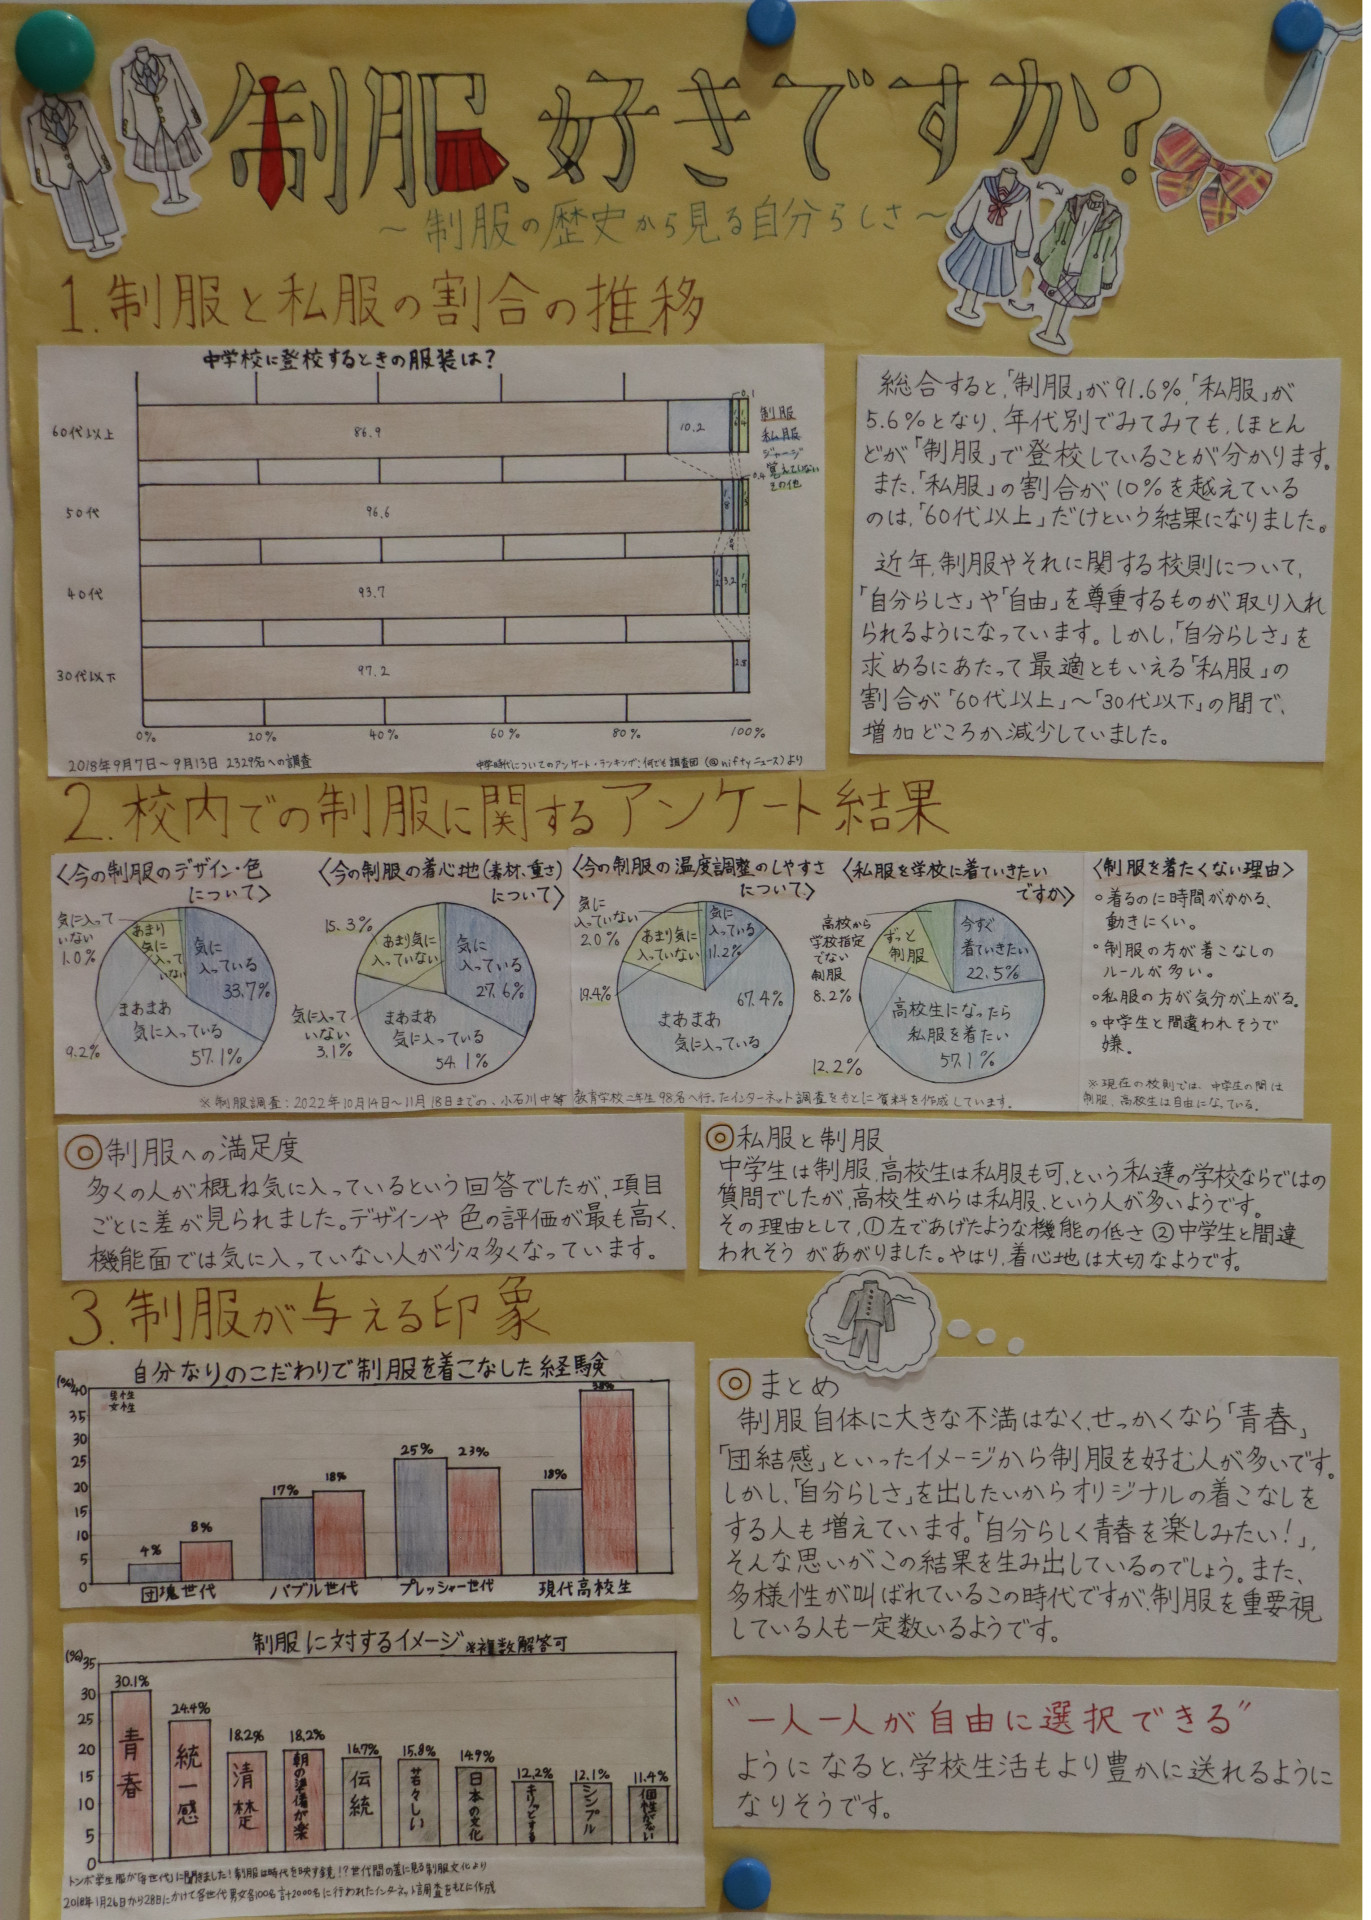 制服、好きですか?
～制服の歴史から見る自分らしさ～
1.制服と私服の割合の推移
中学校に登校するときの服装は?
60代以上
86.9
10.2
0.1
制服
私服
ジャージ
覚えていない
その他
50代
96.6
0.4
40代
93.7
3.2
30代以下
97.2
2.8
0%
20%
40%
60%
80%
100%
2018年9月7日～9月13日 2329名への調査
中学時代についてのアンケート・ランキング:何でも調査団(@niftyニュース)より
総合すると、「制服」が91.6%、「私服」が
5.6%となり、年代別でみてみても、ほとん
どが「制服」で登校していることが分かります。
また、「私服」の割合が10%を越えている
のは、「60代以上」だけという結果になりました。
近年、制服やそれに関する校則について、
「自分らしさ」や「自由」を尊重するものが取り入れ
られるようになっています。しかし、「自分らしさ」を
求めるにあたって最適ともいえる「私服」の
割合が「60代以上」～「30代以下」の間で、
増加どころか減少していました。
2.校内での制服に関するアンケート結果
〈今の制服のデザイン・色
について〉
気に入って
いない
1.0%
あまり
気に
入って
いない
9.2%
気に
入っている
33.7%
まあまあ
気に入っている
57.1%
〈今の制服の着心地(素材、重さ)
について〉
15.3%
あまり気に
入っていない
気に
入っている
27.6%
気に入って
いない
3.1%
まあまあ
気に入っている
54.1%
〈今の制服の温度調整のしやすさ
について〉
気に
入っていない
2.0%
あまり気に
入っていない
19.4%
気に
入っている
11.2%
67.4%
まあまあ
気に入っている
〈私服を学校に着ていきたい
ですか〉
高校から
学校指定
でない
制服
8.2%
ずっと
制服
12.2%
今すぐ
着ていきたい
22.5%
高校生になったら
私服を着たい
57.1%
〈制服を着たくない理由〉
○着るのに時間がかかる、
動きにくい。
○制服の方が着こなしの
ルールが多い。
○私服の方が気分が上がる。
○中学生と間違われそうで
嫌。
※現在の校則では、中学生の間は
制服、高校生は自由になっている。
※制服調査:2022年10月14日～11月18日までの、小石川中等教育学校二年生98名へ行ったインターネット調査をもとに資料を作成しています。
◎制服への満足度
多くの人が概ね気に入っているという回答でしたが、項目
ごとに差が見られました。デザインや色の評価が最も高く、
機能面では気に入っていない人が少々多くなっています。
◎私服と制服
中学生は制服、高校生は私服も可、という私達の学校ならではの
質問でしたが、高校生からは私服、という人が多いようです。
その理由として、①左であげたような機能の低さ②中学生と間違
われそう があがりました。やはり、着心地は大切なようです。
3.制服が与える印象
自分なりのこだわりで制服を着こなした経験
(%)
40
35
30
25
20
15
10
5
0
男性
女性
4%
8%
17%
18%
25%
23%
18%
38%
団塊世代
バブル世代
プレッシャー世代
現代高校生
制服に対するイメージ ※複数解答可
(%)
35
30
25
20
15
10
5
0
30.1%
24.4%
18.2%
18.2%
16.7%
15.8%
14.9%
12.2%
12.1%
11.4%
青春
統一感
清楚
朝の準備が楽
伝統
若々しい
日本の文化
キリッとする
シンプル
個性がない
トンボ学生服が「各世代」に聞きました!制服は時代を映す鏡!?世代間の差に見る制服文化より
2018年1月26日から28日にかけて各世代男女各100名計2000名に行われたインターネット調査をもとに作成
◎まとめ
制服自体に大きな不満はなく、せっかくなら「青春」
「団結感」といったイメージから制服を好む人が多いです。
しかし、「自分らしさ」を出したいからオリジナルの着こなしを
する人も増えています。「自分らしく青春を楽しみたい!」、
そんな思いがこの結果を生み出しているのでしょう。また、
多様性が叫ばれているこの時代ですが、制服を重要視
している人も一定数いるようです。
"一人一人が自由に選択できる"
ようになると、学校生活もより豊かに送れるように
なりそうです。